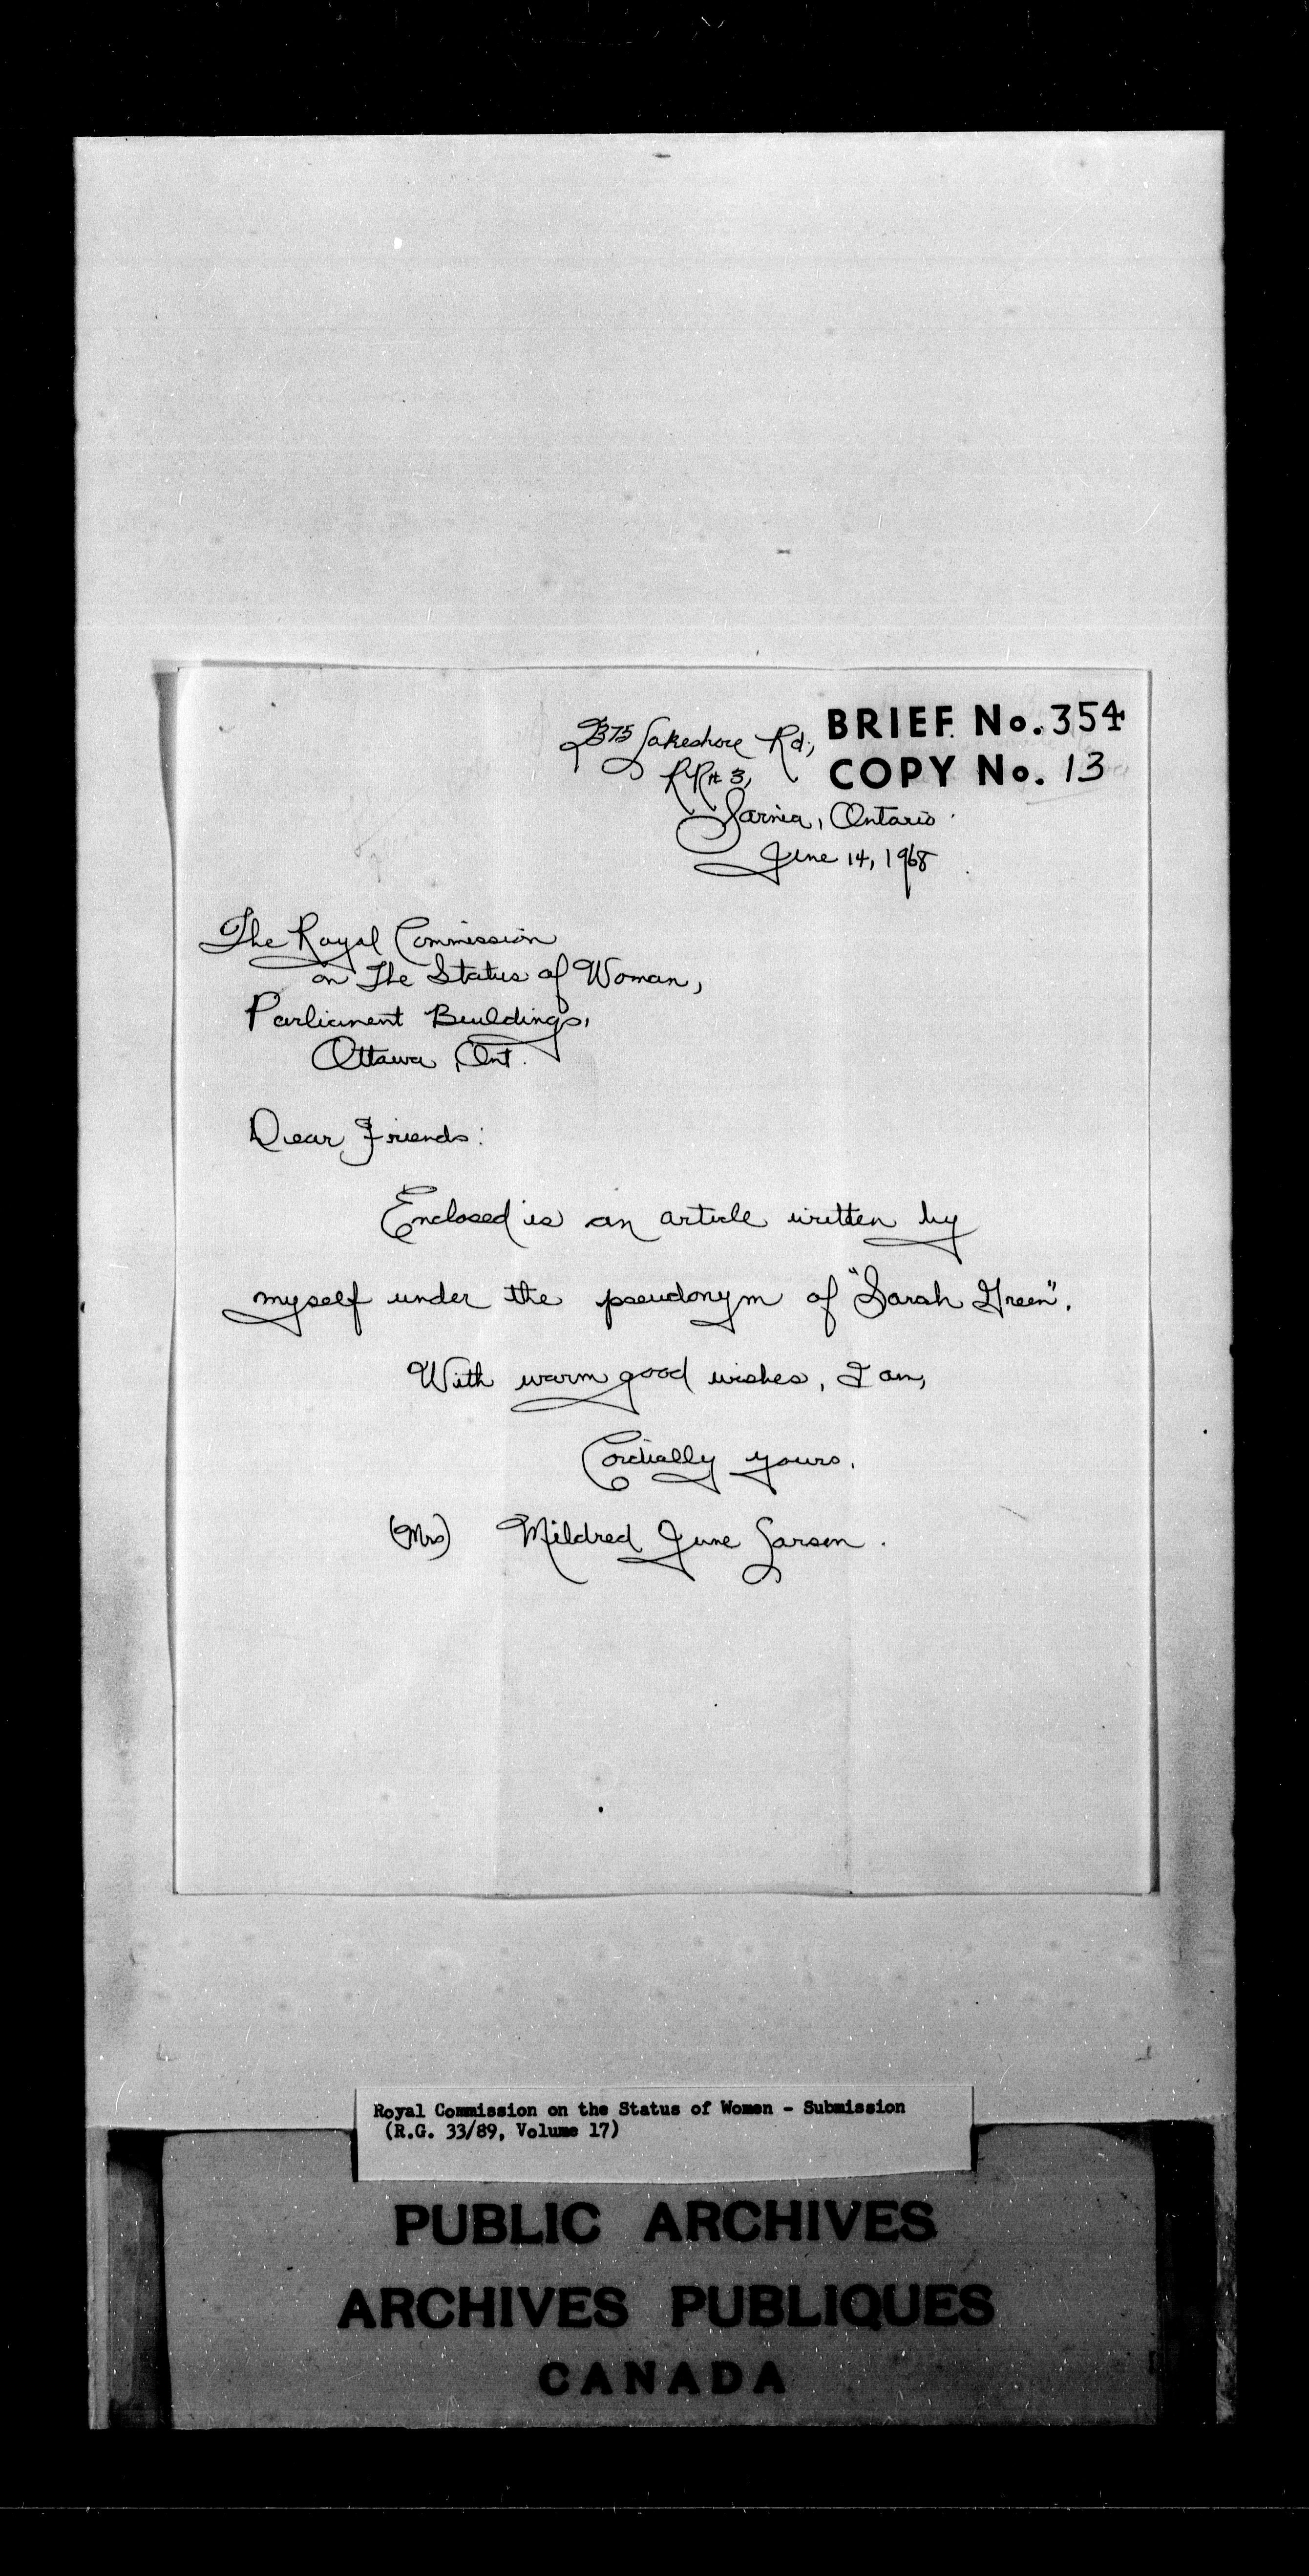 2375 Lakeshore Rd.,
RR# 3,
Sarnia, Ontario.
June 14, 1968
BRIEF No. 354
COPY No. 13
The Royal Commission
on The Status of Woman,
Parliament Buildings,
Ottawa, Ont.
Dear Friends:
Enclosed is an article written by
myself under the pseudonym of "Sarah Green".
With warm good wishes, I am,
Cordially yours,
(Mrs) Mildred June Larsen.
Royal Commission on the Status of Women - Submission
(R.G. 33/89, Volume 17)
PUBLIC ARCHIVES
ARCHIVES PUBLIQUES
CANADA